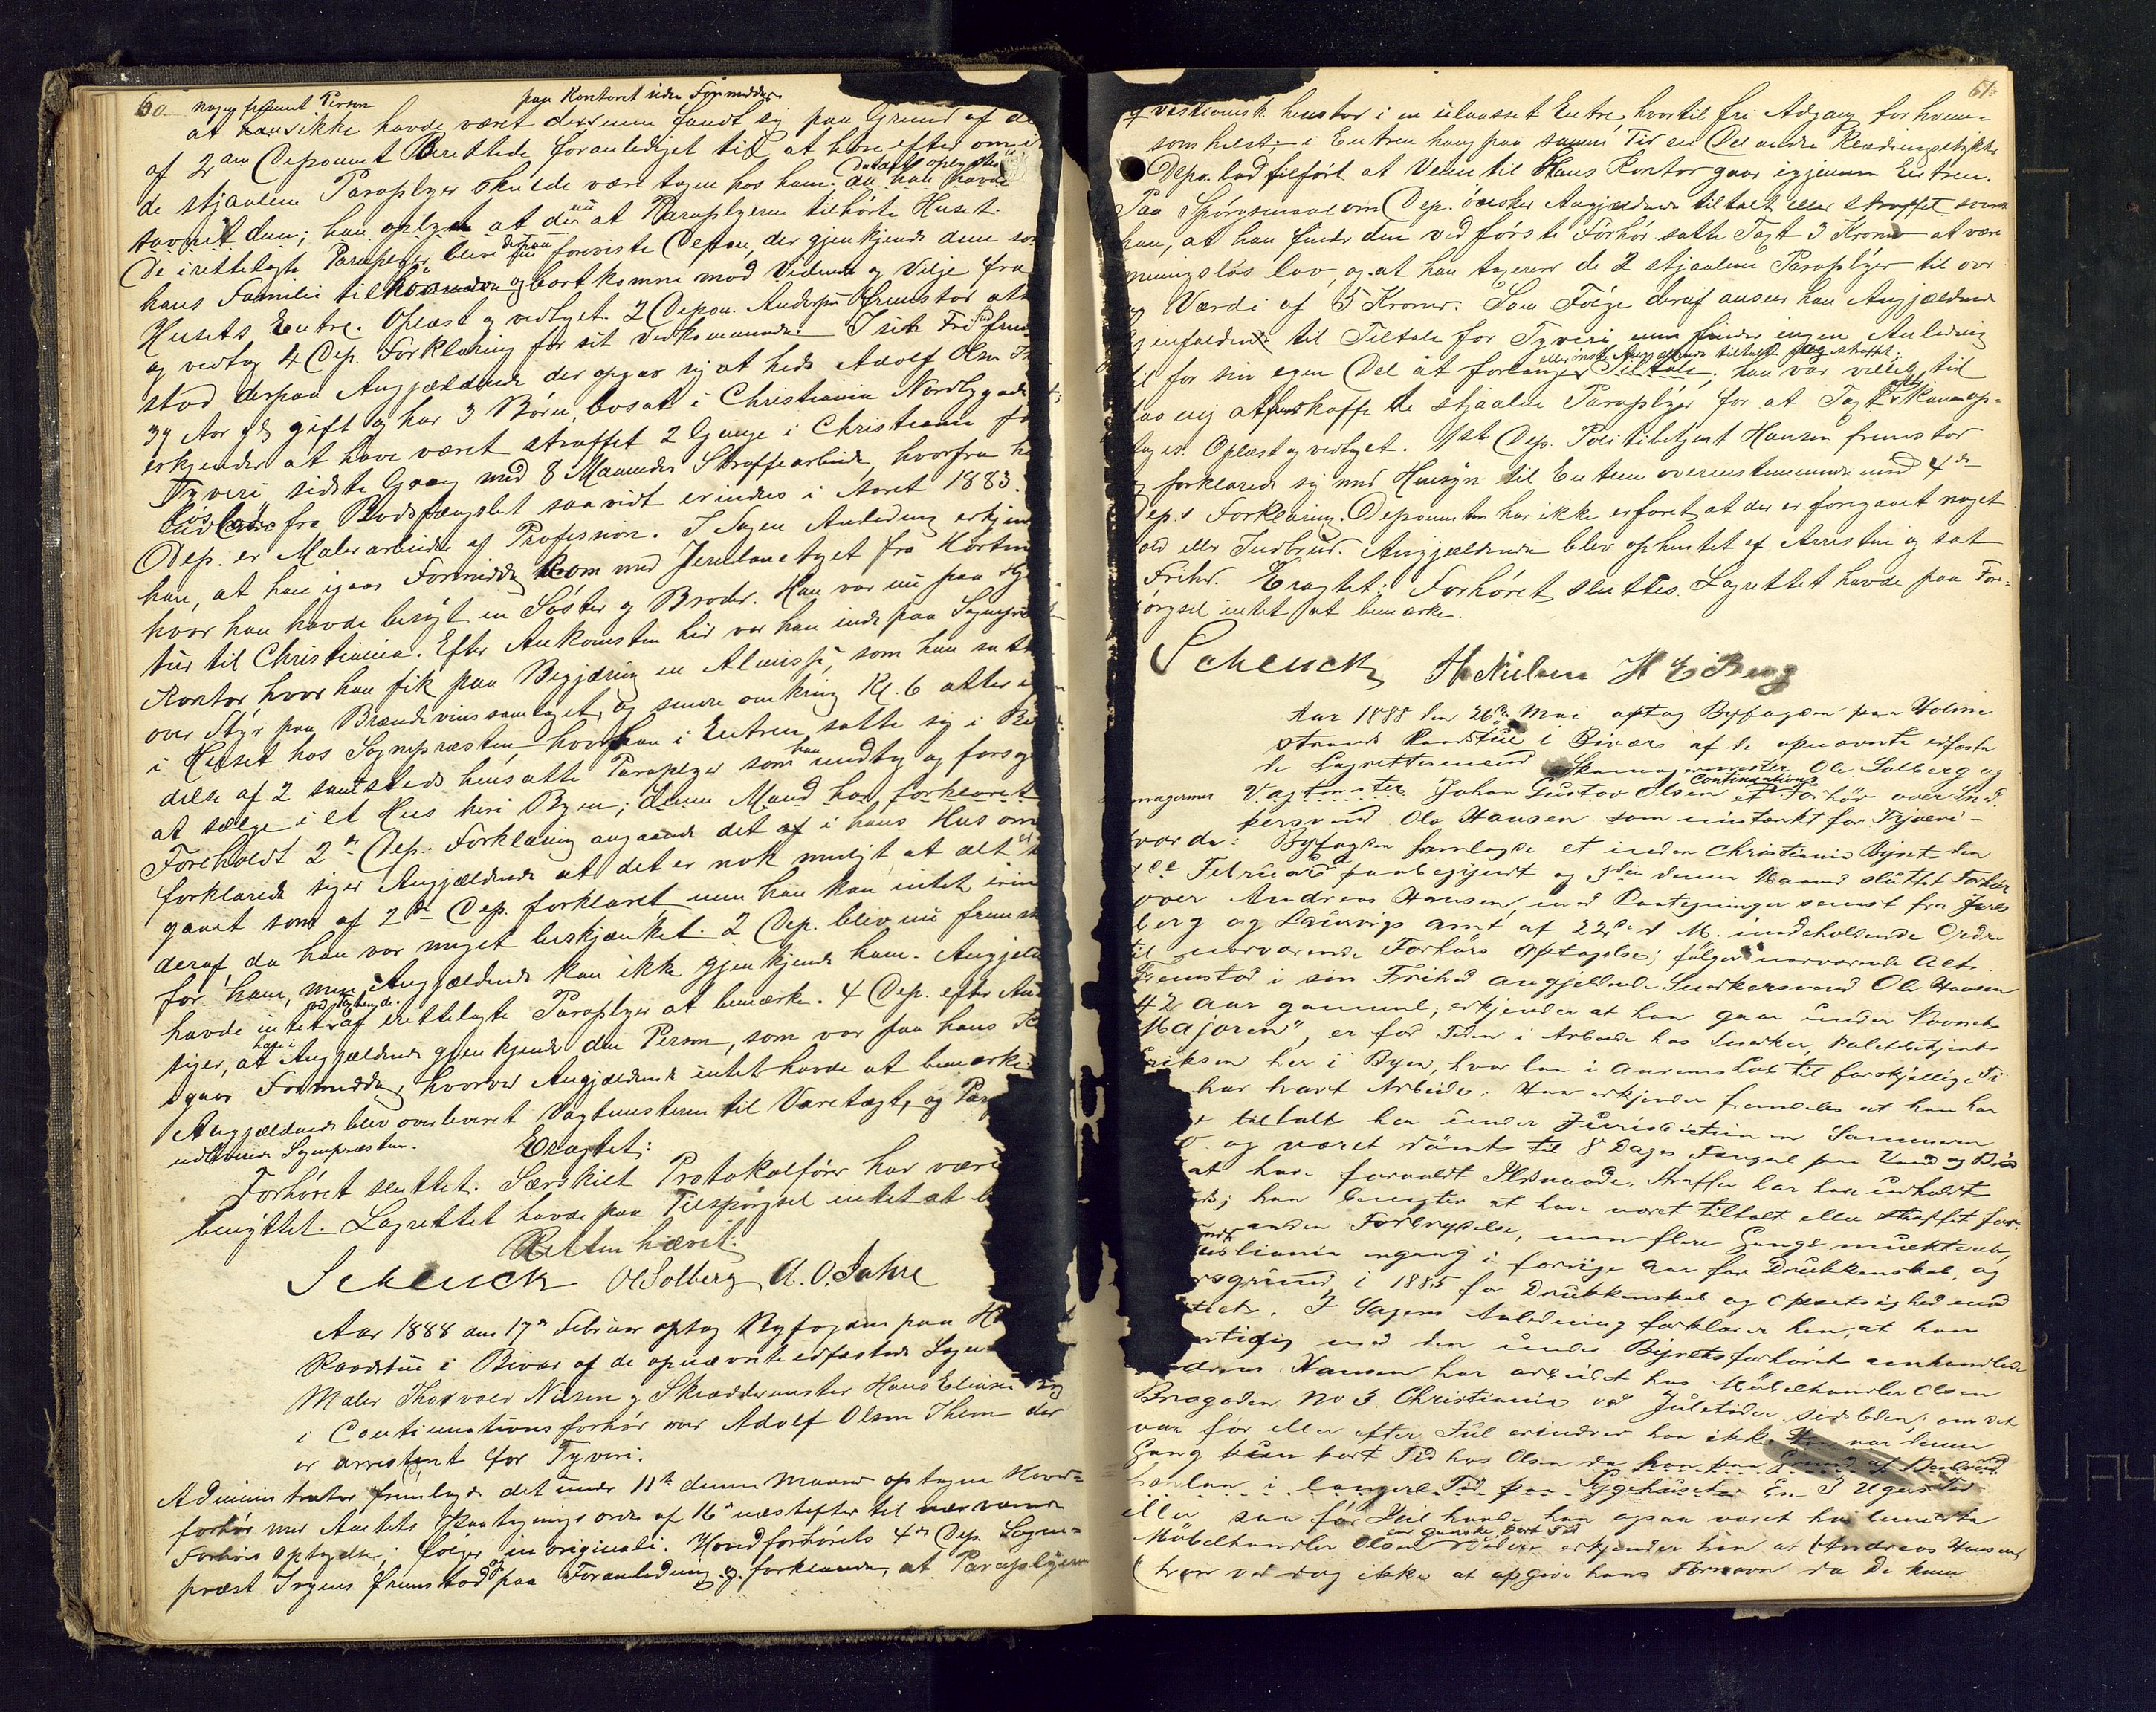 60.
nogen fremmet Person
paa Kontoret siden Formiddag
at han ikke havde været der men fandt sig paa Grund af de
af 2den Deponent Berettede foranlediget til at høre efter om
de stjaalne Paraplyer skulde være tagne hos ham; da han havde
savnet dem; han oplyst at de nu at Paraplyerne tilhørte Huset.
De irettelagte Paraplyer blev derpaa foreviste Depon., der gjenkjende dem som
hans Familie tilhørende og bortkomne mod Vidende og Vilje fra
Husets Entre. Oplæst og vedtaget. 2 Depon. Andersen fremstod atter
og vedtog 4 Dep. Forklaring for sit Vedkommende. I sin Frihed frem
stod derpaa Angjældende der opgav sig at hede Adolf Olsen Th
39 Aar gl gift og har 3 Børn, bosat i Christiania Nordbygade 4;
erkjender at have været straffet 2 Gange i Christiania for
Tyveri, sidste Gang med 8 Maaneder Strafarbeide, hvorfra han
løslodes fra Bodsfængslet saavidt erindres i Aaret 1883.
Dep. er Malerarbeider af Profession. I Sagens Anledning erkjender
han, at han igaar Formiddag kom med Jernbanetoget fra Horten
hvor han havde besøgt en Søster og Broder. Han var nu paa Hjem
tur til Christiania. Efter Ankomsten hid var han inde paa Sognepræstens
Kontor, hvor han fik paa Begjæring en Almisse, som han satte
over Styr paa Brændevinssamlaget, og senere omkring Kl. 6 atter
i Huset hos Sognepræsten hvor han i Entreen satte sig i Be
delse af 2 samsteds hensatte Paraplyer som han medtog og forsøgte
at sælge i et Hus heri Byen; denne Mand har forklaret
Foreholdt 2den Dep. Forklaring angaaende det af i hans Hus om
forklarede siger Angjældende at det er nok muligt at alt er
gaaet som af 2den Dep. forklaret men han kan intet erindre
deraf, da han var meget beskjænket. 2 Dep. blev nu fremstillet
for ham, men Angjældende kan ikke gjenkjende ham. Angjældende
havde intet ved af irettelagte Paraplyer at bemærke. 4 Dep. efter An
siger, at han i Angjældende gjenkjende den Person, som var paa hans K
igaar Formiddag, hvorved Angjældende intet havde at bemærke.
Angjældende blev overleveret Vagtmesteren til Varetægt, og Par
udlevered Sognepræsten. Eragtet:
Forhøret sluttet. Særskilt Protokolfører har været
benyttet. Lagrettet havde paa Tilspørgsel intet at b
Retten hævet.
Schenck Ol Solberg A. O. Jahre
Aar 1888 den 17de Februar optog Byfogden paa H
Raadstue i Bivær af de opnævnte edfæstede Lagret
Maler Thorvald Nilsen og Skræddermester Hans Eliasen Berg
i Continuationsforhør over Adolf Olsen Them der
er arresteret for Tyveri.
Administrator fremlagde det under 11te denne Maaned optagne Hoved-
forhør med Amtets Paategningsordre af 16de næstefter til nærværende
Forhørs Optagelse; følger in originali. Hovedforhørets 4de Dep. Sogne-
præst Irgens fremstod og paa Foranledning og forklarede, at Paraplyerne
61.
qvæstionis henstod i en ulaaset Entre, hvortil fri Adgang for hvem-
somhelst; i Entreen hang paa samme Tid en Del andre Klædningsstykker
Depo. lod tilført at Veien til Hans Kontor gaar igjennem Entreen.
Paa Spørgsmaal om Dep. ønsker Angjældende tiltalt eller straffet svarer
han, at han finder den ved første Forhør satte Taxt 3 Kroner at være
meningsløs lav, og at han taxerer de 2 stjaalne Paraplyer til ovr
og Værdi af 5 Kroner. Som Følge deraf anser han Angjældende
hjemfalden til Tiltale for Tyveri men finder ingen Anledning
eller ønske Angjældende tiltalt og straffet.
til for sin egen Del at forlange Tiltale; han var villig til
paa ny at fremskaffe de stjaalne Paraplyer for at Taxt kan op-
tages. Oplæst og vedtaget. 1ste Dep. Politibetjent Hansen fremstod
og forklarede sig med Hensyn til Entreen overensstemmende med 4de
Dep.s Forklaring. Deponenten har ikke erfaret at der er foregaaet noget
old eller Indbrud. Angjældende blev afhentet af Arresten og sat
Frihed. Eragtet: Forhøret sluttes. Lagrettet havde paa Fore-
spørgsel intet at bemærke.
Schenck Th Nielsen H E Berg
Aar 1888 den 26de Mai optog Byfogden paa Holme
strands Raadstue i Bivær af de opnævnte edfæste
de Lagrettesmænd Skomagermester Ole Solberg og
Vagtmester Johan Gustav Olsen et Continuations Forhør over Sned
kersvend Ole Hansen som mistænkt for Tyveri –
hvorda: Byfogden fremlagde et inden Christiania Byret den
Februar paabegyndt og 3die denne Maaned sluttet Forhør
over Andreas Hansen, med Paategninger senest fra Jarls
berg og Laurvigs Amt af 22de d M. indeholdende Ordre
til nærværende Forhørs Optagelse; følger nærværende Act.
Fremstod i sin Frihed angjældende Snedkersvend Ole Hansen
42 Aar gammel, erkjender at han gaar under Navnet
"Majoren", er for Tiden i Arbeide hos Snedker, Politibetjent
Eriksen her i Byen, hvor han i Aarenes Løb til forskjellige Ti
har havt Arbeide. Han erkjender fremdeles at han har
tiltalt her under Jurisdiction en Sommeren
og været dømt til 8 Dages Fængsel paa Vand og Brød
at have forvoldt Ildsvaade. Straffen har han udholdt
han benegter at have været tiltalt eller straffet for
anden Forbrydelse, men flere Gange mulkteret,
Christiania engang i forrige Aar for Drukkenskab, og
rsgrund i 1885 for Drukkenskab og Opsætsighed mod
I Sagens Anledning forklarer han, at han
rtidig med den under Byretsforhøret omhandlede
Andreas Hansen har arbeidet hos Møbelhandler Olsen
Brogaden No 3. Christiania ved Juletider sidstleden; om det
var før eller efter Jul erindrer han ikke. Han var denne
Gang kun kort Tid hos Olsen da han paa Grund af
i længere Tid paa Sygehuset. En 3 Ugers Tid
eller saa før Jul havde han ogsaa været hos benævnte
Møbelhandler Olsen en ganske kort Tid Videre erkjender han at Andreas Hansen
(han ved dog ikke at opgive hans Fornavn da De kun